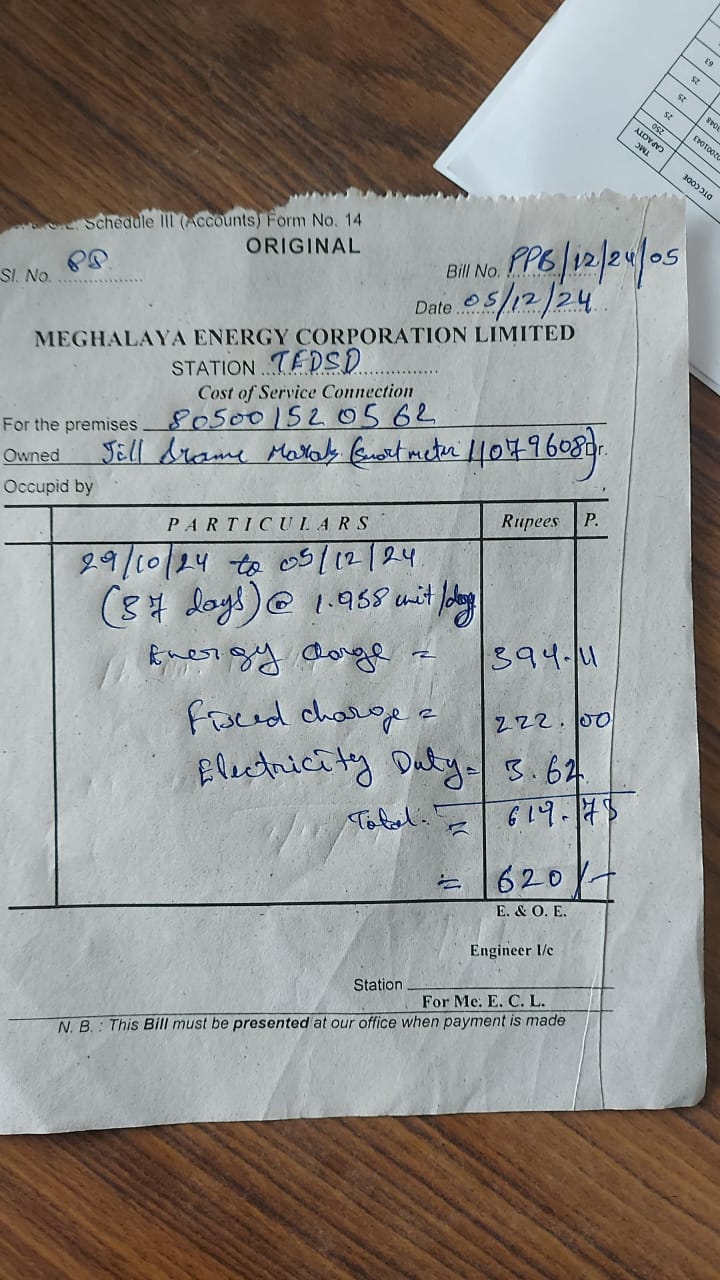 Schedule III (Accounts) Form No. 14
ORIGINAL
Sl. No. 88
Bill No. PPB/12/24/05
Date 05/12/24
MEGHALAYA ENERGY CORPORATION LIMITED
STATION TEDSD
Cost of Service Connection
For the premises 805001520562
Owned Jill Marak (Smart meter 11079608) Dr.
Occupid by
PARTICULARS Rupees P.
29/10/24 to 05/12/24
(37 days) @ 1.958 unit/day
Energy charge = 394.11
Fixed charge = 222.00
Electricity Duty = 3.62
Total = 619.73
= 620/-
E. & O. E.
Engineer I/c
Station
For Me. E. C. L.
N. B. : This Bill must be presented at our office when payment is made
DTC CODE
TMC CAPACITY
250
25
25
25
63